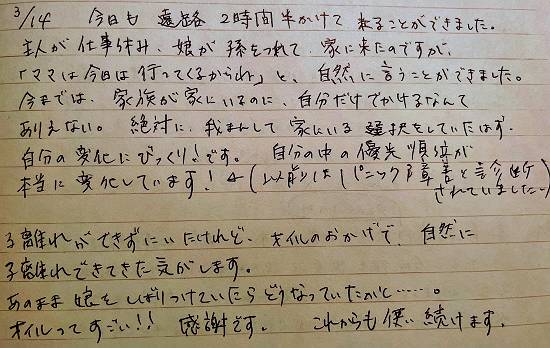 3/14 今日も 遠路 2時間半かけて 来ることができました。
主人が仕事休み、娘が孫をつれて、家に来たのですが、
「ママは今日は行ってくるからね」と、自然に言うことができました。
今までは、家族が家にいるのに、自分だけでかけるなんて
ありえない。絶対に、我まんして家にいる選択をしていたはず。
自分の変化にびっくり!です。自分の中の優先順位が
本当に変化しています! ←(以前はパニック障害と診断
されていました〜)
子離れができずにいたけれど、オイルのおかげで、自然に
子離れできてきた気がします。
あのまま娘をしばりつけていたらどうなっていたかと……。
オイルってすごい!! 感謝です。 これからも使い続けます。